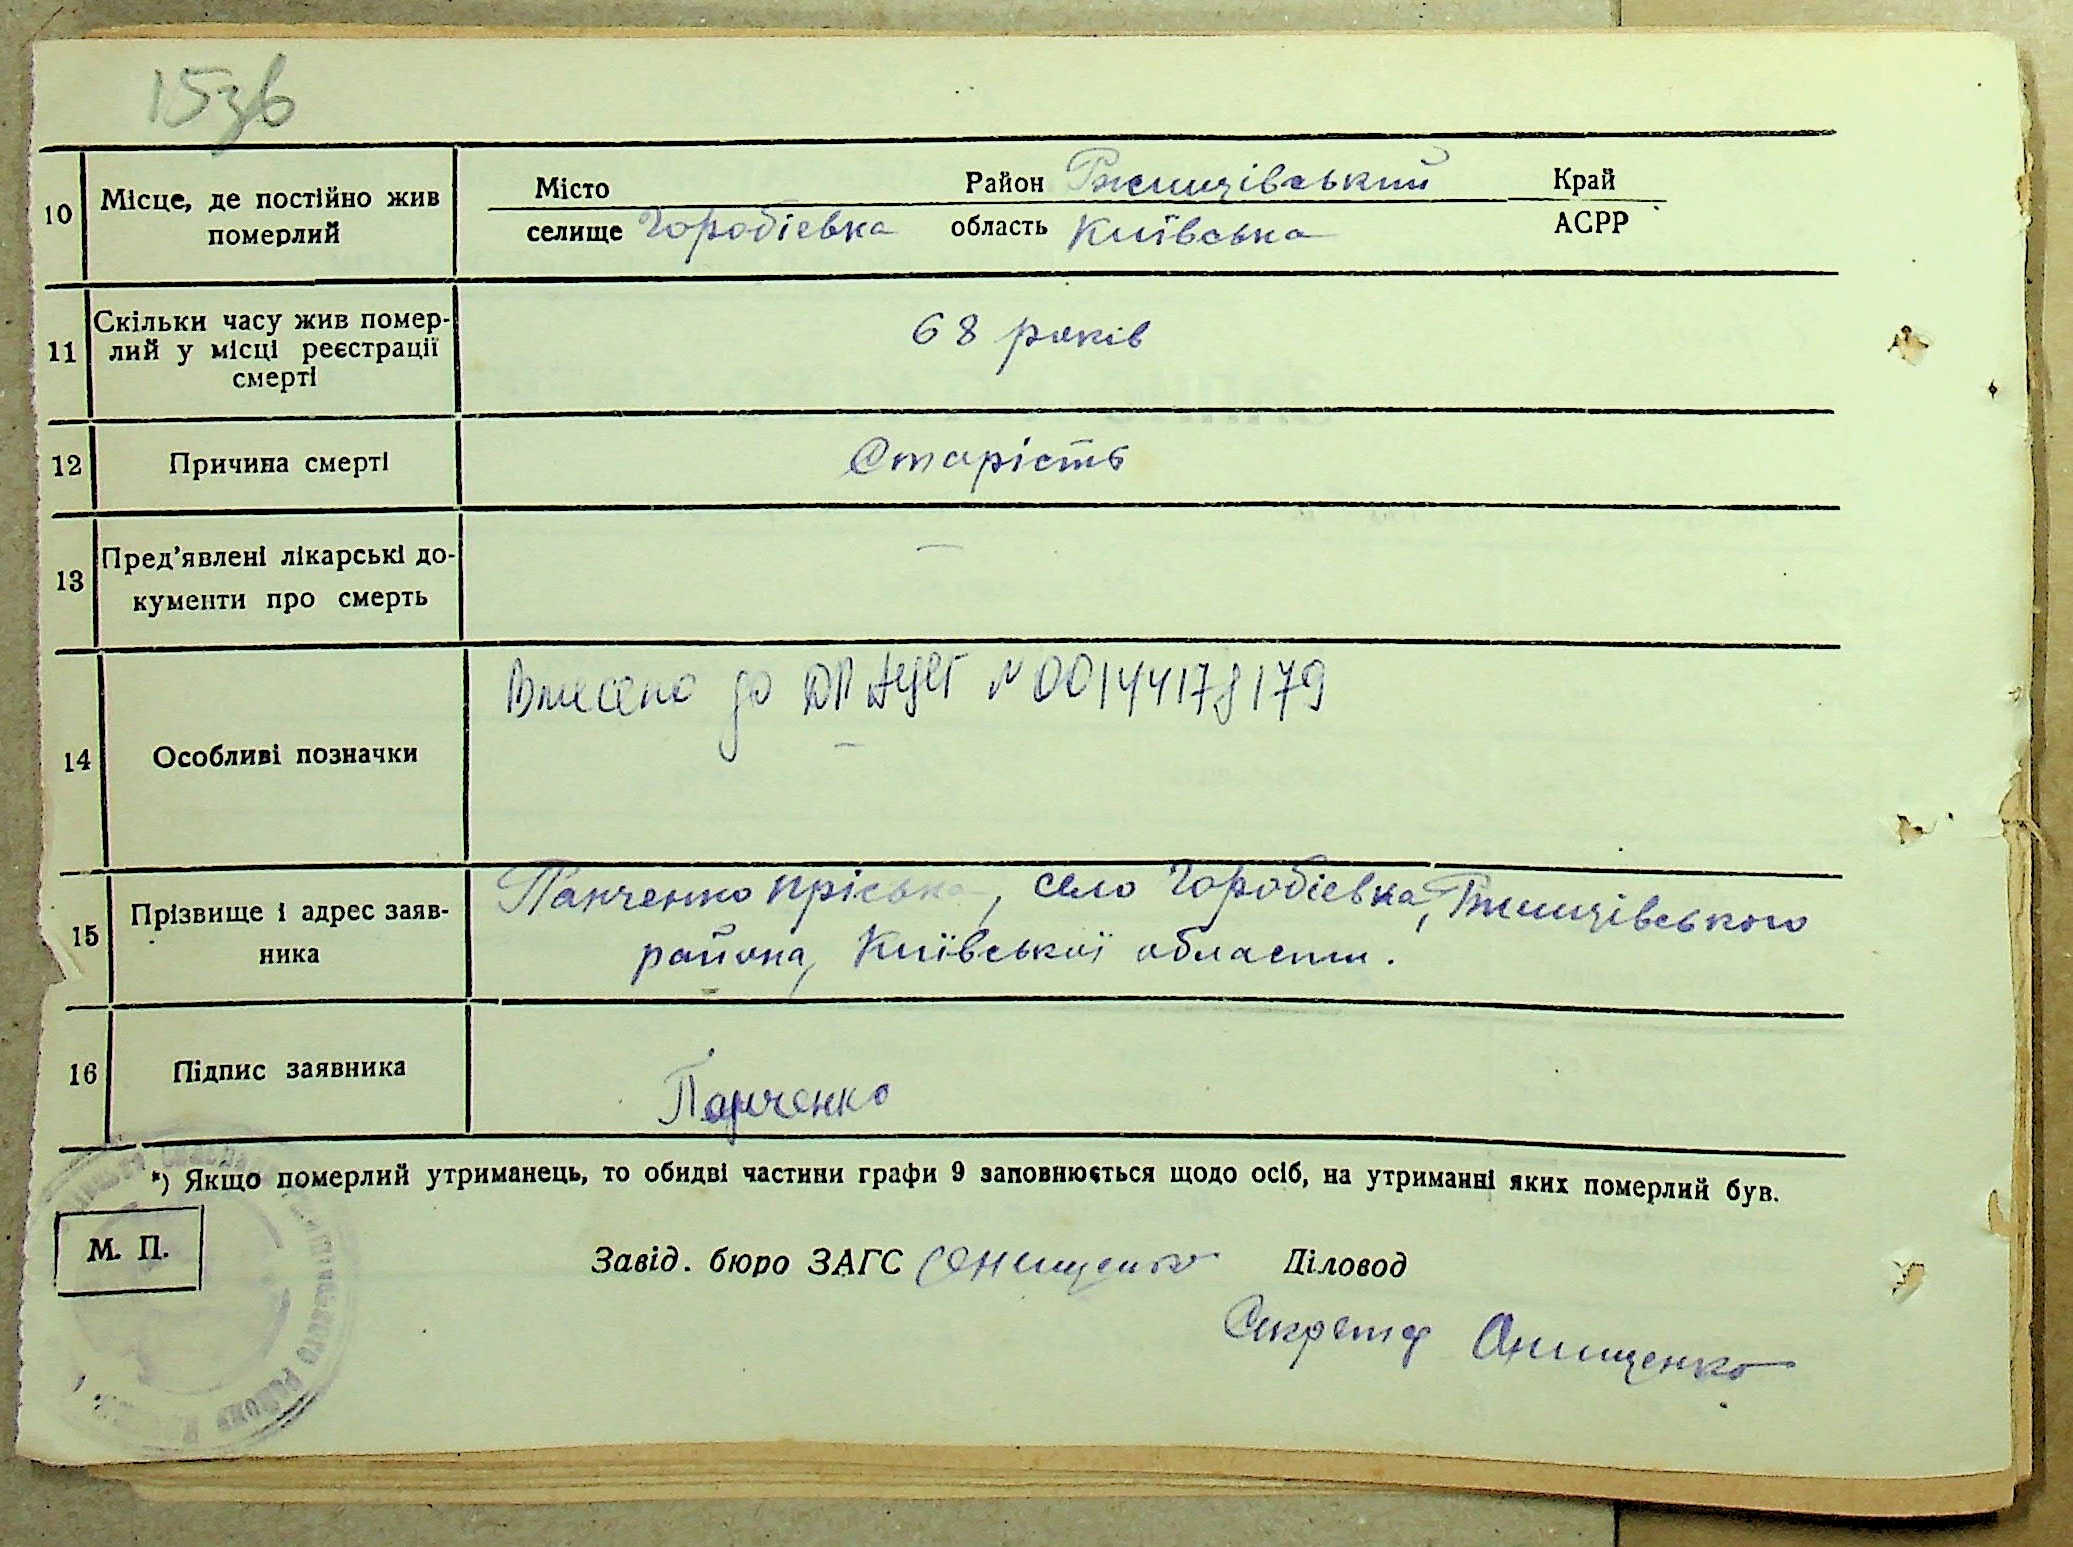 15зв
10 Місце, де постійно жив померлий
Місто Район Ржищівський Край
селище Горобіевка область Київська АСРР
11 Скільки часу жив помер-
лий у місці реєстрації
смерті
68 років
12 Причина смерті Старість
13 Пред'явлені лікарські до-
кументи про смерть
—
14 Особливі позначки
Внесено до ДРАЦСГ № 00144178179
—
15 Прізвище і адрес заяв-
ника
Панченко Пріська, село Горобіевка, Ржищівського
района, Київської области.
16 Підпис заявника Панченко
*) Якщо померлий утриманець, то обидві частини графи 9 заповнюється щодо осіб, на утриманні яких померлий був.
М. П.
Завід. бюро ЗАГС Онищенко Діловод
Секретар Онищенко